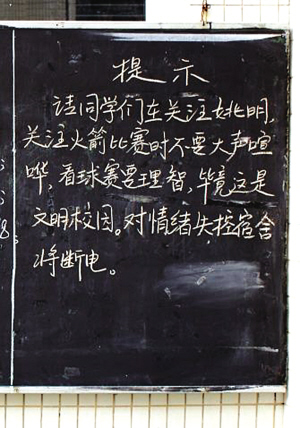 提示
请同学们在关注姚明,
关注火箭比赛时不要大声喧
哗,看球赛要理智,毕竟这是
文明校园。对情绪失控宿舍
将断电。